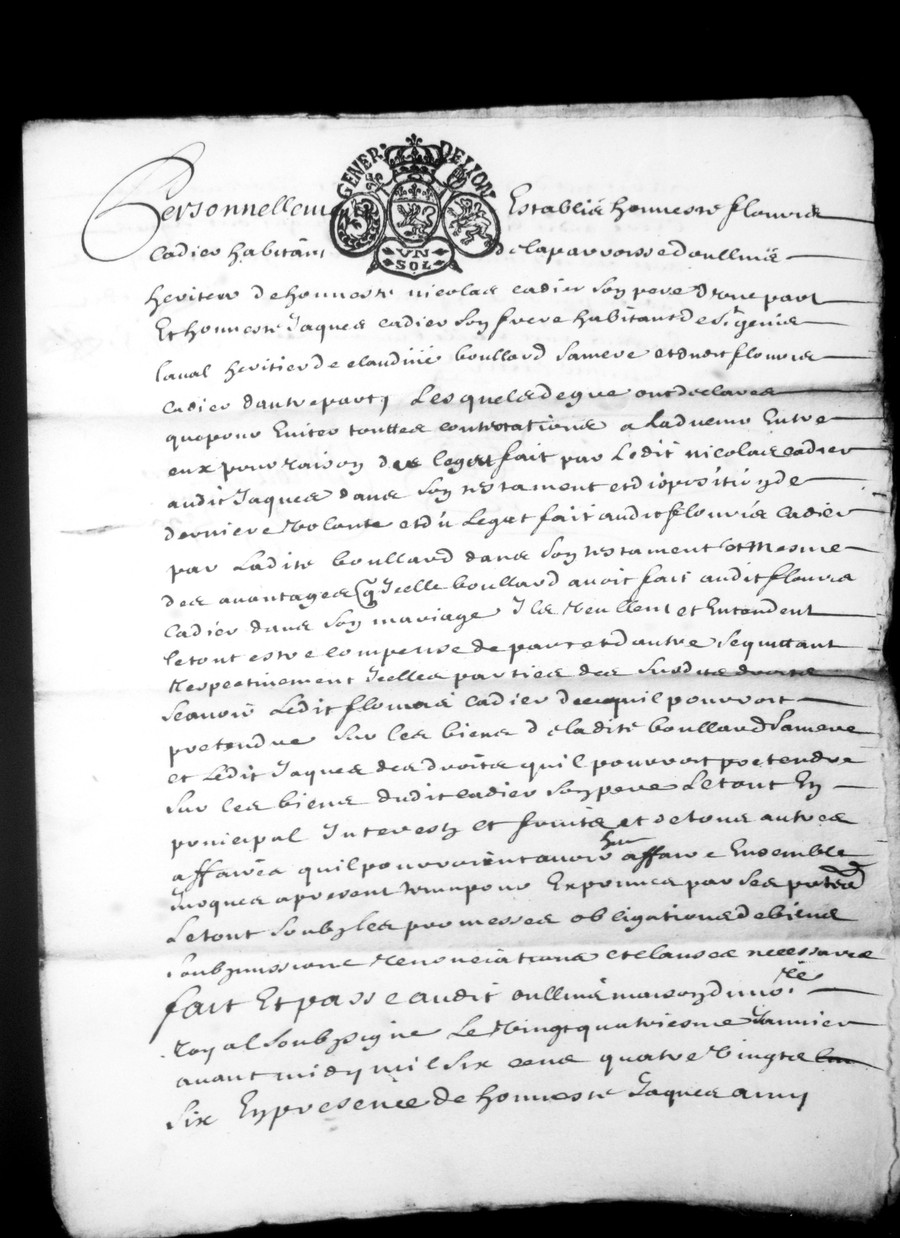 GENER DE LYON
UN SOL
Personnellem Establis honneste flouris
Cadier habitant de la parroisse doullins
heritier de honneste nicolas cadier son pere d'une part
Et honneste Jaques cadier son frere habitant de St genis
laval heritier de claudine boullard sa mere et dudit flouris
Cadier dautre part, Lesquels de gre ont declares
que pour Eviter touttes contestations a ladvenir Entre
eux pour raison des legat fait par Ledit nicolas cadier
audit Jaques dans son testament et disposition de
derniere volonte et du Legat fait audit flouris Cadier
par Ladite boullard dans son testament et mesme
des avantages q Icelle boullard avoit fait audit flouris
Cadier dans son mariage Ils veullent et Entendent
le tout estre compense de part et dautre se quittant
respectivement Icelles parties des susdits droits
scavoir Ledit flouris Cadier de ce quil pourroit
pretendre sur les biens de ladite boullard sa mere
et Ledit Jaques des droits quil pourroit pretendre
sur les biens dudit cadier son pere Le tout En
principal Interests et fruits et de tous autres
affaires quil pourroient avoir affaire Ensemble
jusques a present Exprimes par ses
Le tout soubz les promesses obligations de biens
soubzmissions renonciations et clauses necessaires
fait Et passe audit oullins maison du no.re
royal soubzsigne Le vingt quatriesme Janvier
avant midy mil six cens quatre vingts
six En presence de honneste Jaques